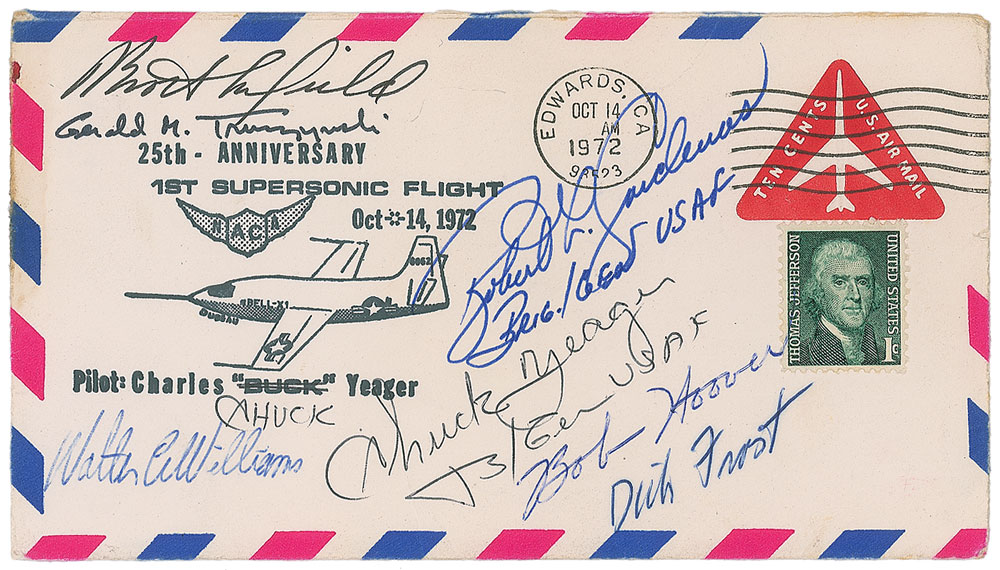 Gerald M. Truszynski
25th - ANNIVERSARY
1ST SUPERSONIC FLIGHT
NACA
Oct-14, 1972
6062
BELL-X1
Pilot: Charles "BUCK" Yeager
CHUCK
Walter C Williams
EDWARDS, CA
OCT 14
AM
1972
93523
TEN CENTS
U.S. AIR MAIL
THOMAS JEFFERSON
UNITED STATES
1c
Robert L. Cardenas
Brig/Gen USAF
Chuck Yeager
B/Gen USAF
Bob Hoover
Dick Frost